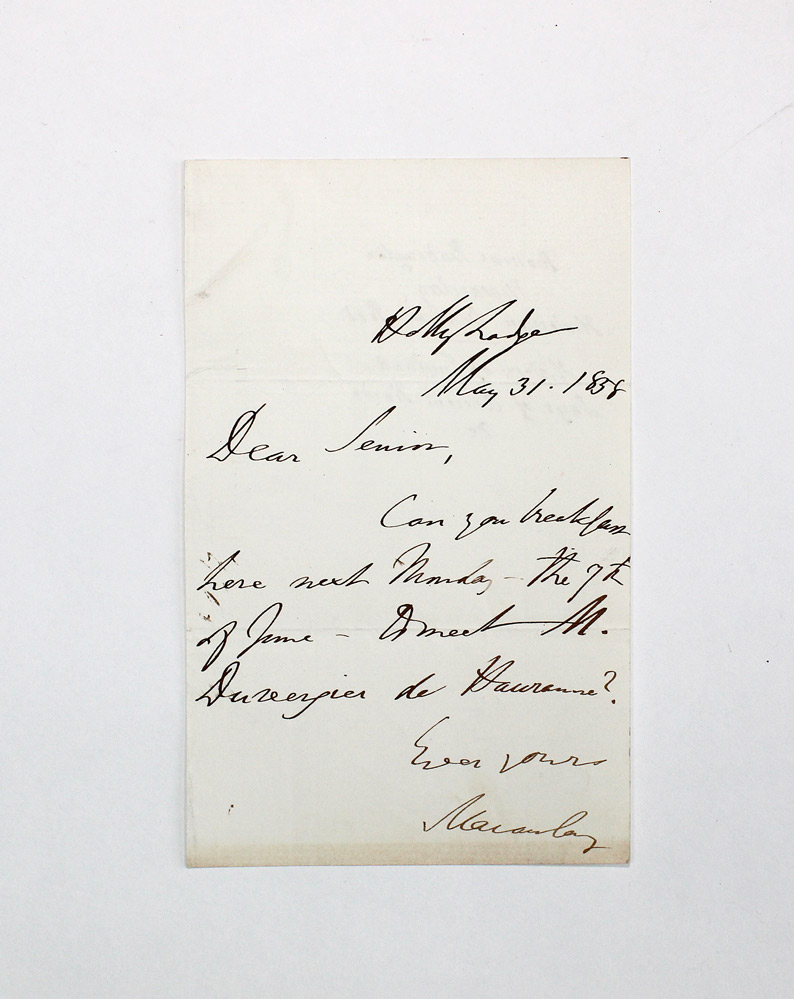 Holly Lodge
May 31. 1858
Dear Senior,
Can you breakfast
here next Monday - the 7th
of June - to meet M.
Duvergier de Hauranne?
Ever yours
Macaulay